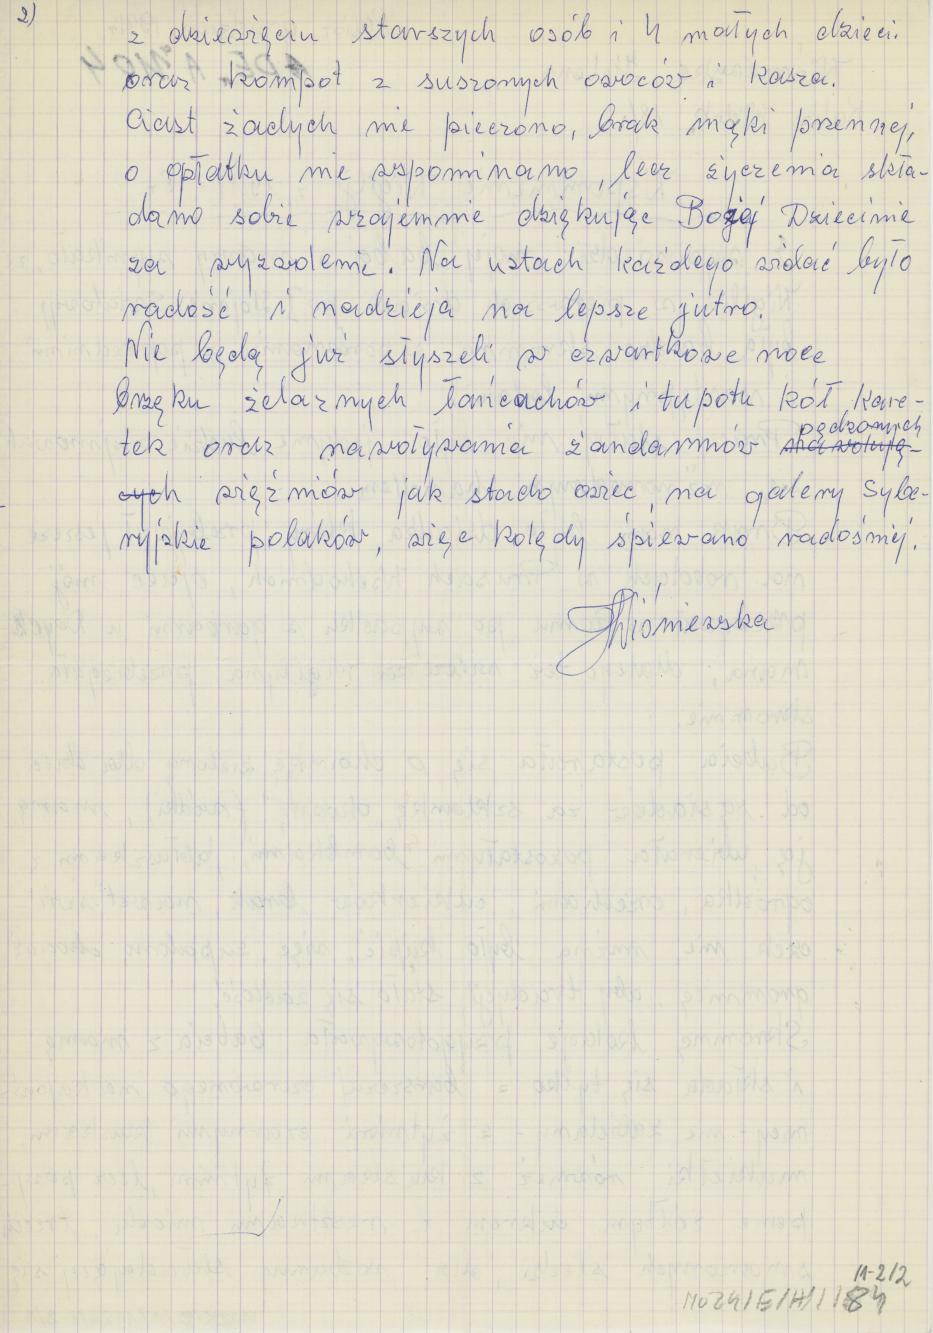 2)
z dziesięciu starszych osób i 4 małych dzieci.
oraz kompot z suszonych owoców i kasza.
Ciast żadych nie pieczono, brak mąki przennej,
o opłatku nie wspominano, lecz życzenia skła-
dano sobie wzajemnie dziękując Bożej Dziecinie
za wyzwolenie. Na ustach każdego widać było
radość i nadzieja na lepsze jutro.
Nie będą już słyszeli w czwartkowe noce
brzęku żelaznych łańcuchów i tupotu kół kare-
tek oraz nawoływania żandarmów pędzonych
więźniów jak stado owiec, na galery Sybe-
ryjskie polaków, więc kolędy śpiewano radośniej.
Wiśniewska
11-2/2
MOZK/E/H/1/84